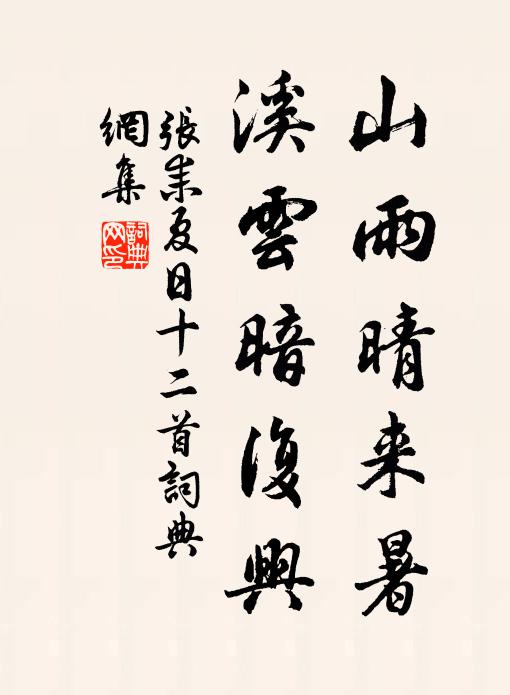 山雨晴来暑
溪雲暗復興
張耒夏日十二首詞典
網集
詞典
网印